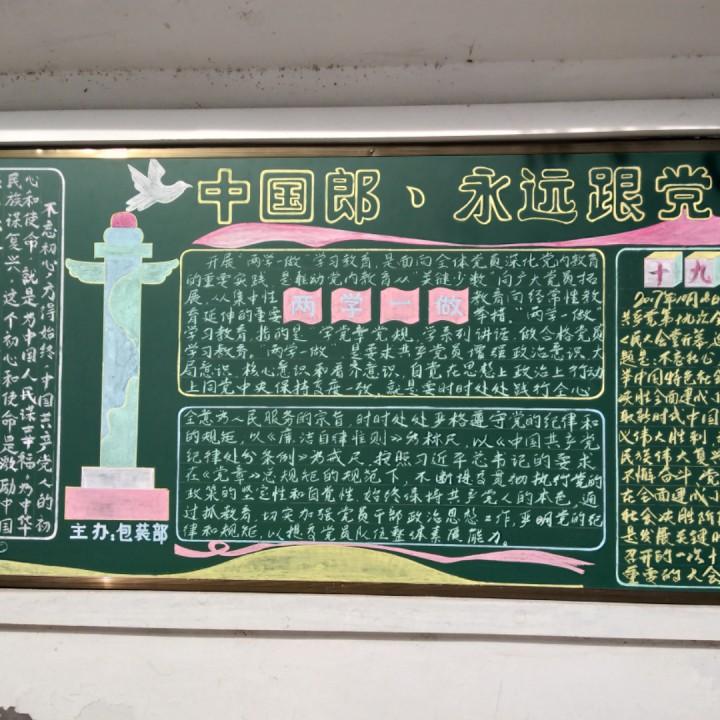 中国郎、永远跟党
不忘初心方得始终 中国共产党人的初
心和使命,就是为中国人民谋幸福 为中华
民族谋复兴 这个初心和使命是激励中国
主办:包装部
开展"两学一做"学习教育,是面向全体党员深化党内教育
的重要实践,是推动党内教育从"关键少数"向广大党员拓
展、从集中性
教育向经常性教
育延伸的重要
举措"两学一做"
两学一做
学习教育,指的是"学党章党规、学系列讲话,做合格党员"
学习教育。"两学一做"是要求共产党员增强政治意识、大
局意识、核心意识和看齐意识,自觉在思想上政治上行动
上同党中央保持高度一致。就是要时时处处践行全心
全意为人民服务的宗旨,时时处处严格遵守党的纪律和
的规矩,以《廉洁自律准则》为标尺,以《中国共产党
纪律处分条例》为戒尺,按照习近平总书记的要求
在《党章》总规矩的规范下,不断提高贯彻执行党的
政策的坚定性和自觉性,始终保持共产党人的本色,通
过抓教育,切实加强党员干部政治思想工作,严明党的纪
律和规矩,以提交党员队伍整体素质能力。
十九
2017年10月
共产党第十九次
人民大会堂开幕
题是:不忘初心
举中国特色社会
决胜全面建成小
取新时代中国
义伟大胜利
民族伟大复兴
不懈奋斗 党
在全面建成小
社会决胜阶
是发展关键时
召开的一次十
重要的大会